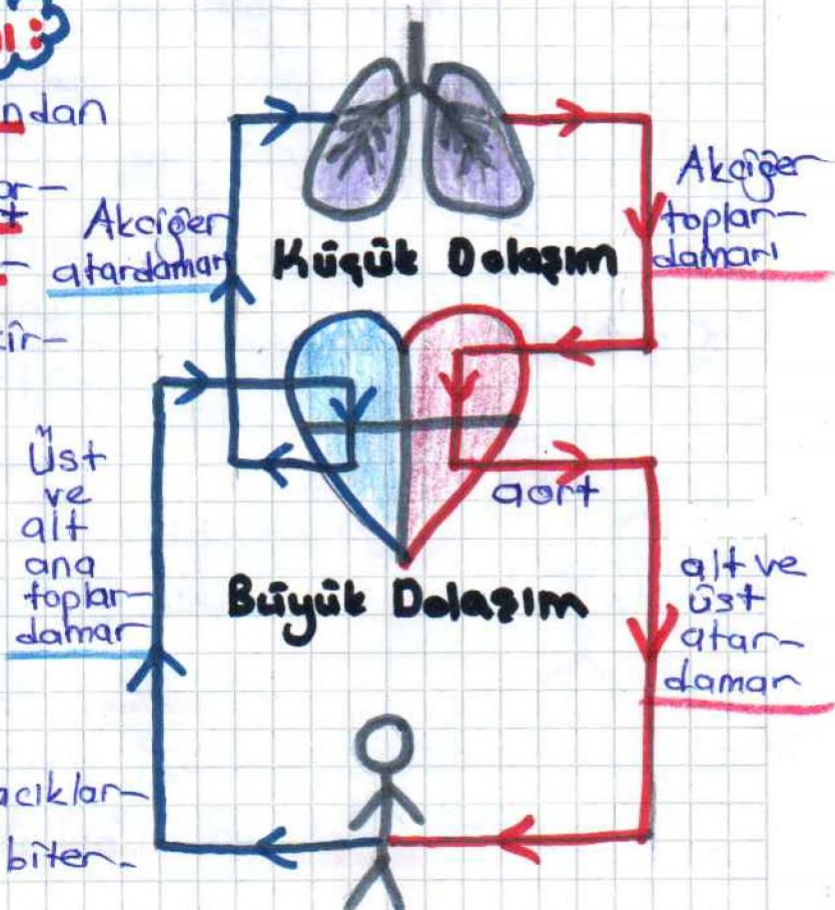 ı:
ndan
ar-
t
-
kir-
Akciğer
atardamarı
Küçük Dolaşım
Akciğer
toplar-
damarı
Üst
ve
alt
ana
toplar-
damar
aort
Büyük Dolaşım
alt ve
üst
atar-
damar
acıklar-
biter.